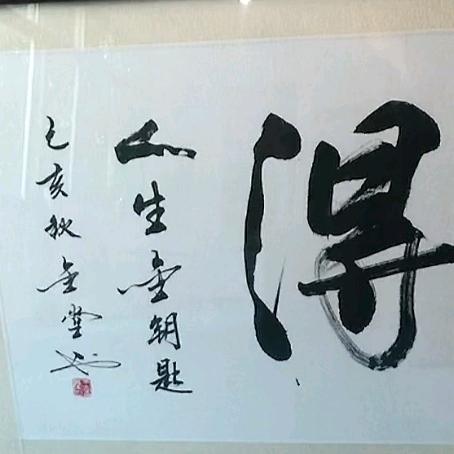 得
人生金钥匙
己亥秋金堂书